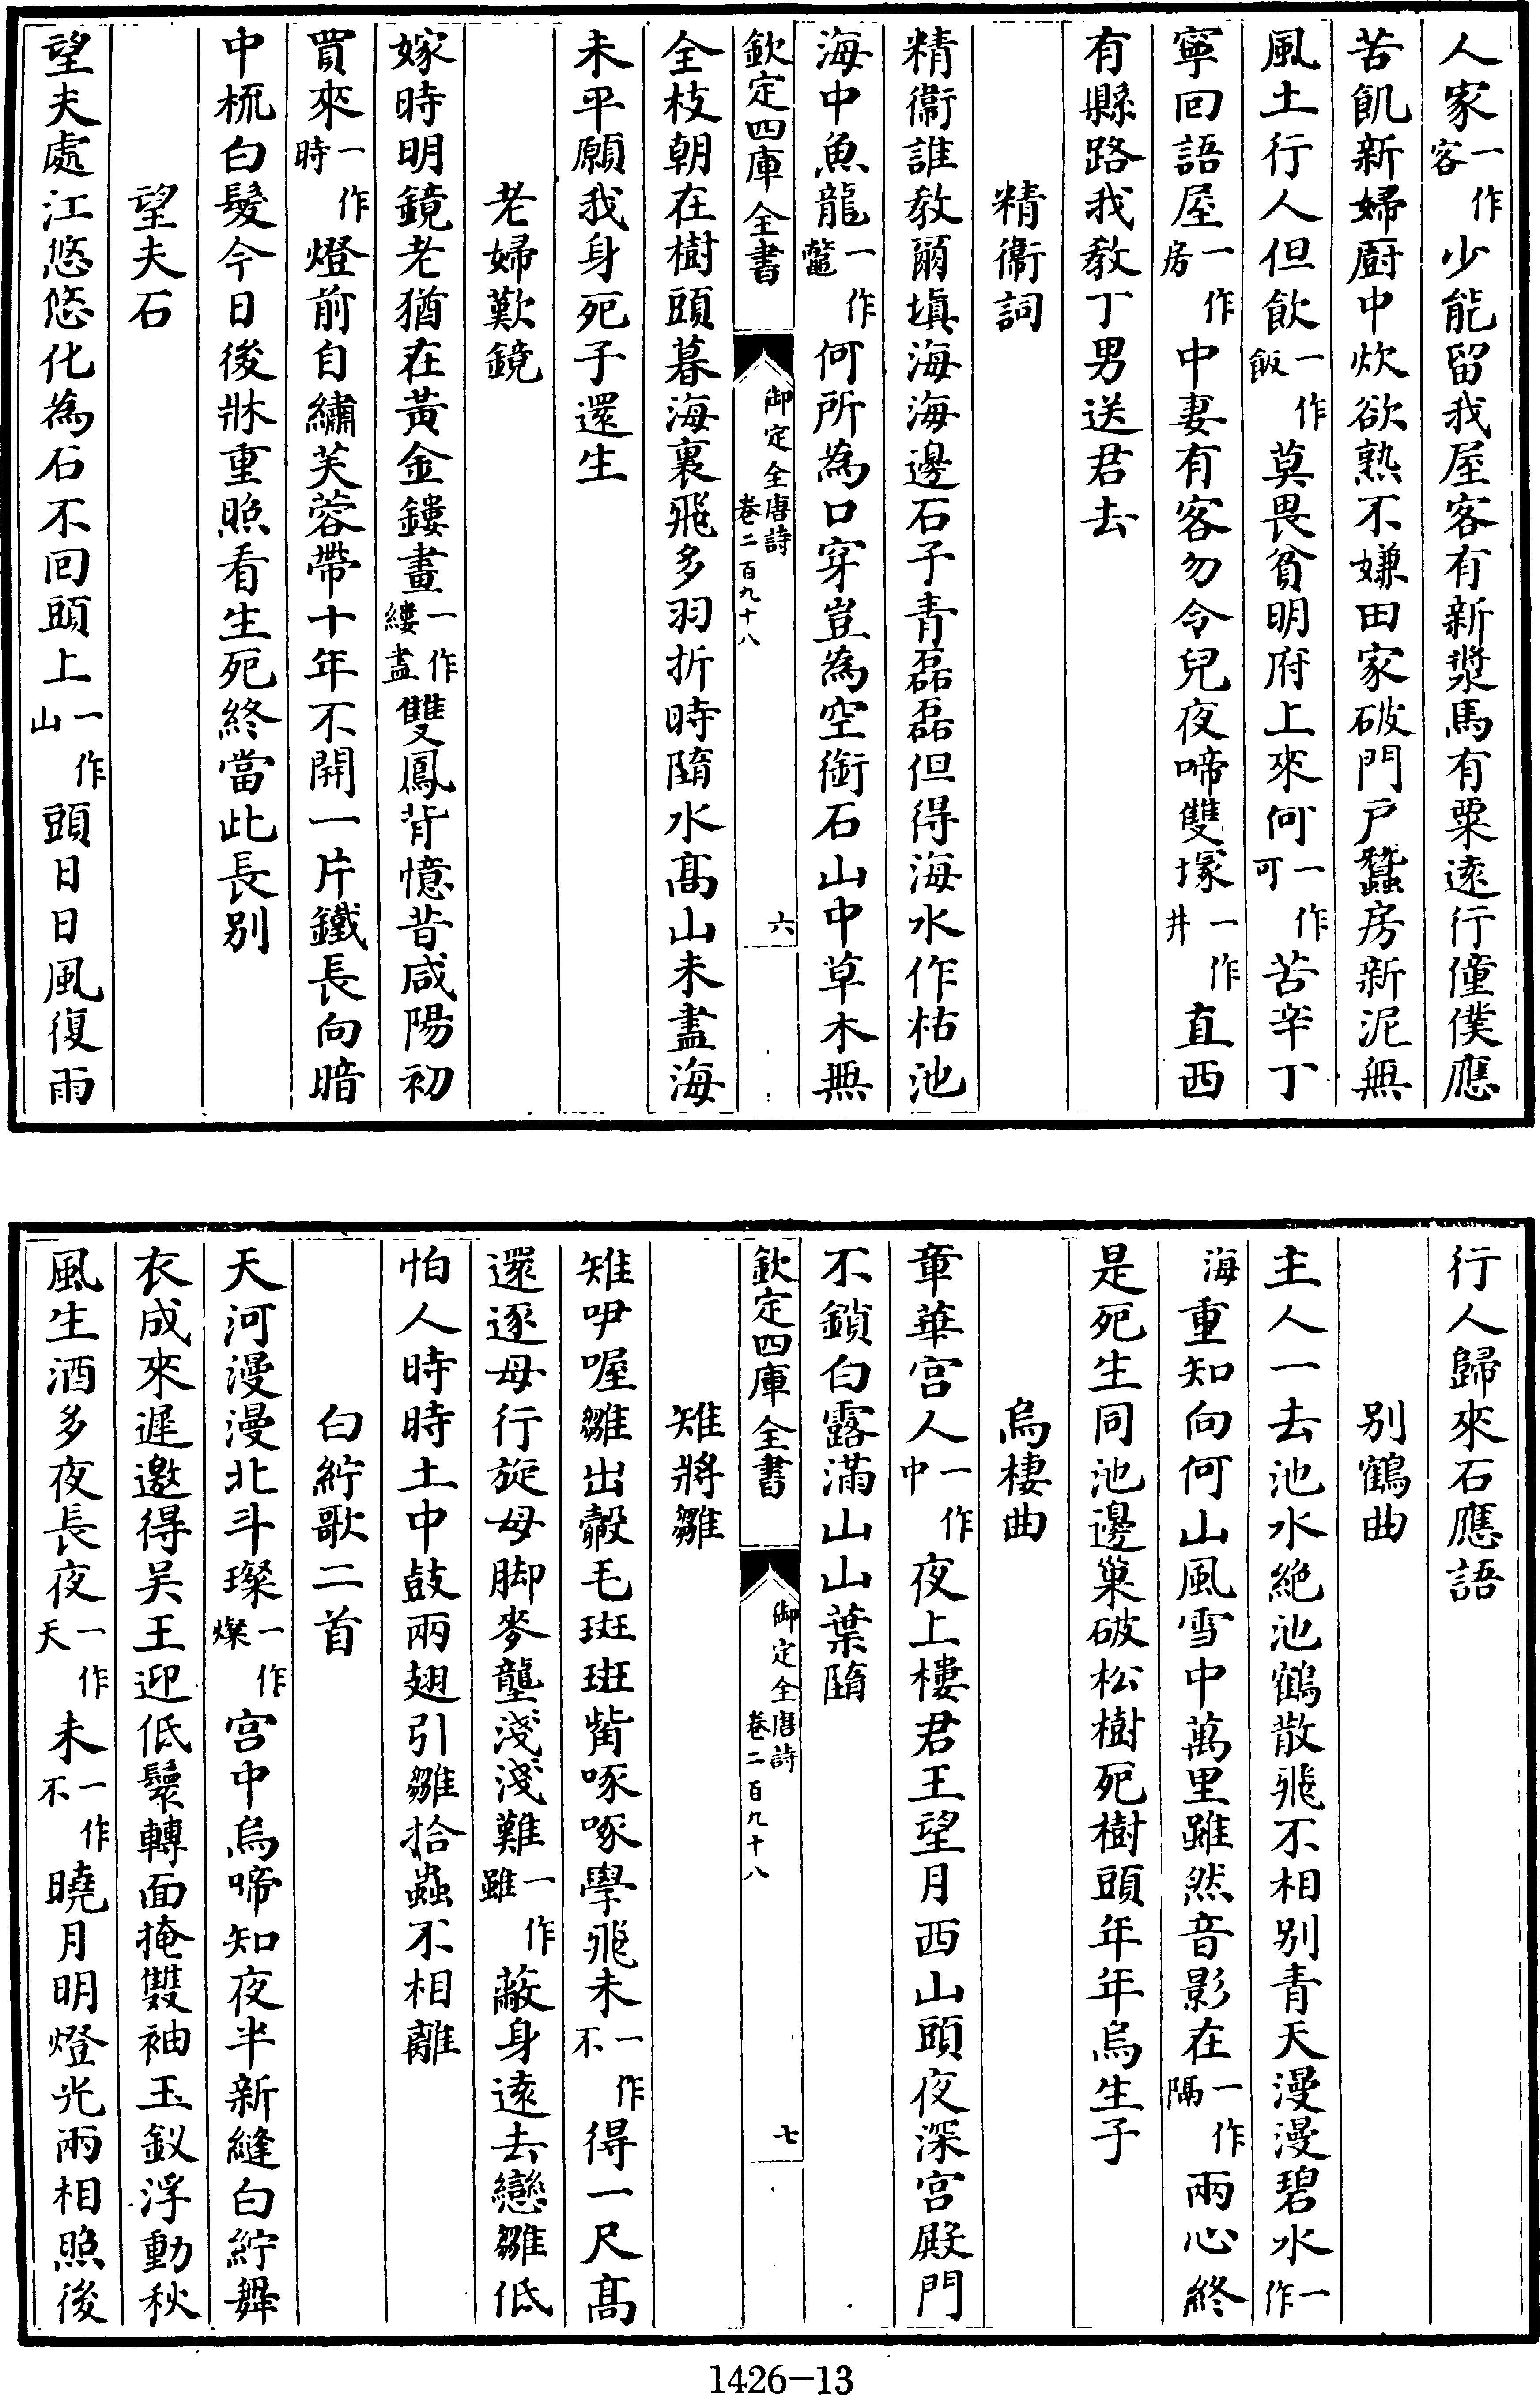 人家一作客少能留我屋客有新漿馬有粟逺行僮僕應
苦飢新婦厨中炊欲熟不嫌田家破門戸蠶房新泥無
風土行人但飲一作飯莫畏貧明府上來何一作可苦辛丁
寧回語屋一作房中妻有客勿令兒夜啼雙塜一作井直西
有縣路我教丁男送君去
精衞詞
精衞誰教爾塡海海邊石子青磊磊但得海水作枯池
海中魚龍一作鼇何所為口穿豈為空銜石山中草木無
欽定四庫全書
御定全唐詩
卷二百九十八
六
全枝朝在樹頭暮海裏飛多羽折時隋水髙山未盡海
未平願我身死子還生
老婦歎鏡
嫁時明鏡老猶在黃金鏤畫一作縷盡雙鳳背憶昔咸陽初
買來一作時燈前自繡芙蓉帶十年不開一片鐵長向暗
中梳白髮今日後牀重照看生死終當此長别
望夫石
望夫處江悠悠化為石不回頭上一作山頭日日風復雨
行人歸來石應語
别鶴曲
主人一去池水絶池鶴散飛不相别青天漫漫碧水一作
海重知向何山風雪中萬里雖然音影在一作隔兩心終
是死生同池邊巢破松樹死樹頭年年烏生子
烏棲曲
章華宫人一作中夜上樓君王望月西山頭夜深宫殿門
不鎖白露滿山山葉隋
欽定四庫全書
御定全唐詩
卷二百九十八
七
雉將雛
雉咿喔雛出㲉毛斑斑觜啄啄學飛未一作不得一尺髙
還逐母行旋母脚麥壟淺淺難一作雖蔽身逺去戀雛低
怕人時時土中鼓兩翅引雛拾蟲不相離
白紵歌二首
天河漫漫北斗璨一作燦宫中烏啼知夜半新縫白紵舞
衣成來遲邀得吴王迎低鬟轉面掩雙袖玉釵浮動秋
風生酒多夜長夜一作天未一作不曉月明燈光兩相照後
1426-13